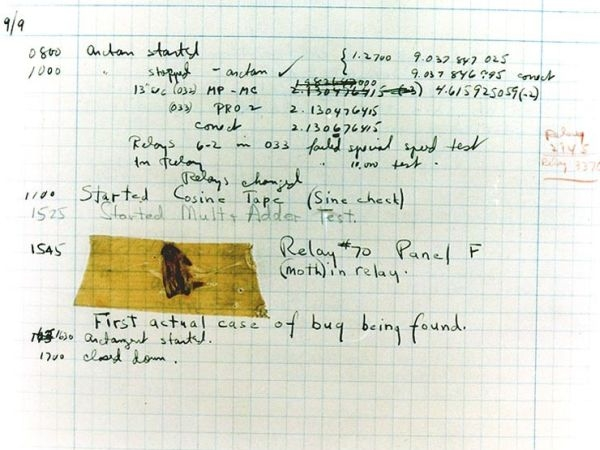 9/9
0800 antan started { 1.2700 9.037 847 025
1000 " stopped - antan ✓ 9.037 846 995 conect
13"uc (032) MP - MC 2.130476415 4.615925059(-2)
(033) PRO 2 2.130476415
conect 2.130676415
Relays 6-2 in 033 failed special speed test
In Relay " 10.000 test.
Relays changed
Relay
2145
Relay 3370
1100 Started Cosine Tape (Sine check)
1525 Started Mult + Adder Test.
1545 Relay #70 Panel F
(moth) in relay.
First actual case of bug being found.
1630 antangent started.
1700 closed down.